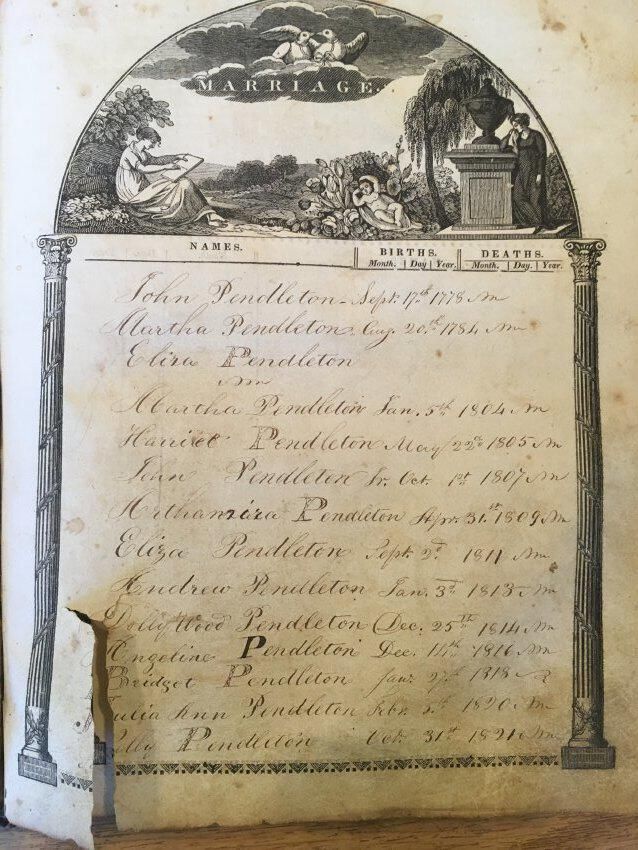 MARRIAGE.
NAMES. BIRTHS. DEATHS.
Month. Day Year. Month. Day. Year.
John Pendleton - Sept. 17th 1778
Martha Pendleton Aug. 20th 1784
Eliza Pendleton
Martha Pendleton Jan. 5th 1804
Harriet Pendleton May 22nd 1805
John Pendleton Jr. Oct. 1st 1807
Pendleton Apr. 31st 1809
Eliza Pendleton Sept. 2d 1811
Andrew Pendleton Jan. 3d 1813
Dolly Wood Pendleton Dec. 25th 1814
Angeline Pendleton Dec. 14th 1816
Bridget Pendleton Jan. 1818
Julia Ann Pendleton Febr. 5th 1820
Pendleton Oct. 31st 1821